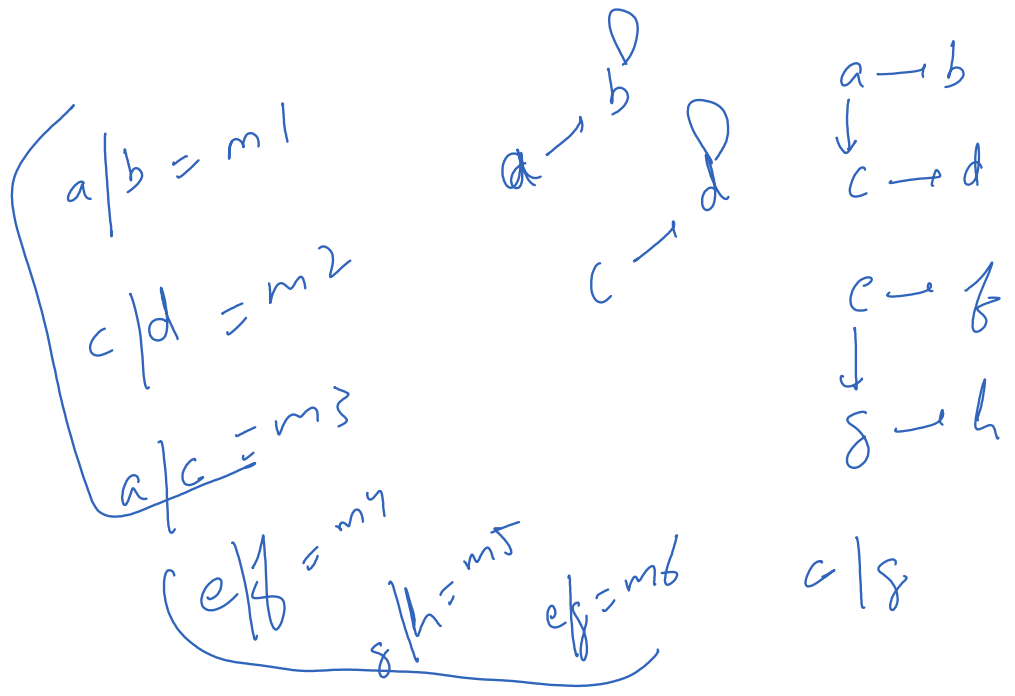 a|b = m1
c|d = m2
a|c = m3
e|f = m4
g|h = m5
e|g = m6
a → b
c → d
a → b
↓
c → d
e → f
↓
g → h
c|g